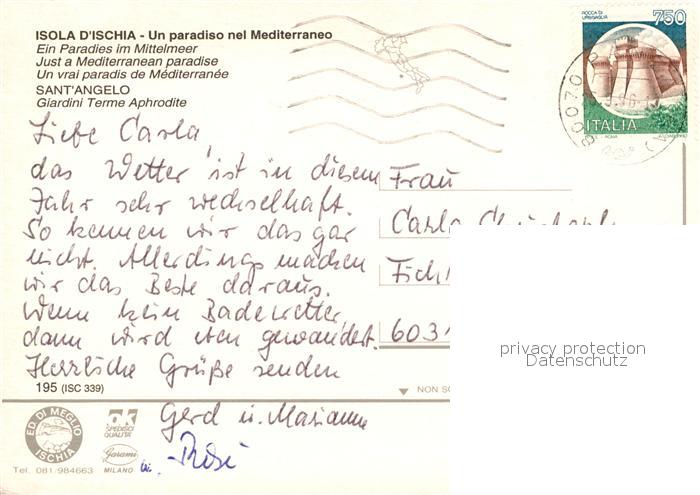 ISOLA D'ISCHIA - Un paradiso nel Mediterraneo
Ein Paradies im Mittelmeer
Just a Mediterranean paradise
Un vrai paradis de Méditerranée
SANT'ANGELO
Giardini Terme Aphrodite
ROCCA DI URBISAGLIA
750
ITALIA
80070
Liebe Carla,
das Wetter ist in diesem
Jahr sehr wechselhaft.
So kennen wir das gar
nicht. Allerdings machen
wir das Beste daraus.
Wenn kein Badewetter,
dann wird eben gewandert.
Herrliche Grüße senden
Gerd u. Marianne
u. Rosi
Frau
Carla
Ficht
6031
privacy protection
Datenschutz
195 (ISC 339)
NON SC
ED. DI MEGLIO
ISCHIA
Tel. 081/984663
ok
SPEDISCI
QUALITÀ
Garami
MILANO